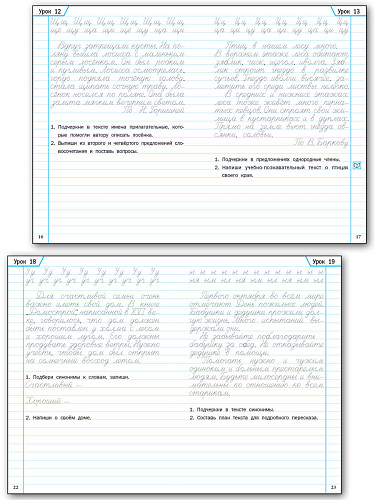 Урок 12
Щ щ Щ щ Щ щ Щ щ Щ щ Щ щ Щ щ
Вдруг затрещали кусты. На по-
ляну вышла лосиха с маленьким
серым лосёнком. Он был робким
и пугливым. Лосиха осмотрелась,
гордо подняла точёную голову,
стала щипать сочную траву. Ло-
сёнок носился по поляне. Она была
залита мягким вечерним светом.
1. Подчеркни в тексте имена прилагательные, кото-
рые помогли автору описать лосёнка.
2. Выпиши из второго и четвёртого предложений сло-
восочетания и поставь вопросы.
16
Урок 13
Ц ц Ц ц Ц ц Ц ц Ц ц Ц ц Ц ц
Птиц в нашем лесу много.
В верхнем этаже леса обитают
зяблик, чиж, щегол, иволга. Зяб-
лик строит гнездо в развилке
сучьев. Гнездо иволги висячее, за-
В средних и нижних этажах
леса тоже живёт много перна-
тых певцов. Они строят свои жи-
лища в кустарниках и в дуплах.
Прямо на земле вьют гнёзда ов-
сянки, соловьи.
По В. Баркову
1. Подчеркни в предложениях однородные члены.
2. Напиши учебно-познавательный текст о птицах
своего края.
17
Урок 18
У у У у У у У у У у У у У у
Для счастливой семьи очень
важно иметь свой дом. В книге
"Домострой", написанной в XVI ве-
ке, говорилось, что дом должен
быть поставлен у холма с лесом
и хорошим лугом. Его должны
продувать здоровые ветры. Нужно
учесть, чтобы дом был открыт
на солнечный восход летом.
1. Подбери синонимы к словам, запиши.
Счастливый –
Хороший –
2. Напиши о своём доме.
22
Урок 19
Первого октября во всём мире
отмечают День пожилых людей.
Бабушки и дедушки прожили дол-
гую жизнь. Много испытаний вы-
держали они.
Не забывайте поблагодарить
бабушку за обед. Не откладывайте
дедушке в помощи.
Помогать нужно и чужим
одиноким и больным престарелым
людям. Будьте милосердны и вни-
мательны по отношению ко всем
старикам.
1. Подчеркни в тексте синонимы.
2. Составь план текста для подробного пересказа.
23